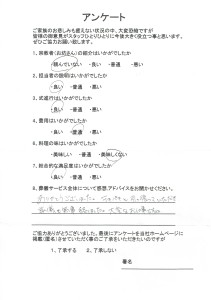 アンケート
ご家族のお悲しみも癒えない状況の中、大変恐縮ですが
皆様の御意見がスタッフひとりひとりに今後大きく役立つ事と思います。
ぜひご協力お願い致します。
1、宗教者（お坊さん）の紹介はいかがでしたか
・頼んでいない ・良い ・普通 ・悪い
2、担当者の説明はいかがでしたか
・良い ・普通 ・悪い
3、式進行はいかがでしたか
・良い ・普通 ・悪い
4、費用はいかがでしたか
・良い ・普通 ・悪い
5、料理の味はいかがでしたか
・美味しい ・普通 ・美味しくない
6、総合的な満足度はいかがでしたか
・良い ・普通 ・悪い
8、葬儀サービス全体について感想、アドバイスをお聞かせください。
ありがとうございました。
ご協力ありがとうございました。最後にアンケートを当社ホームページに
掲載（匿名）させていただく事のご了承をいただきたいのですが
1、了承する 2、了承しない
署名